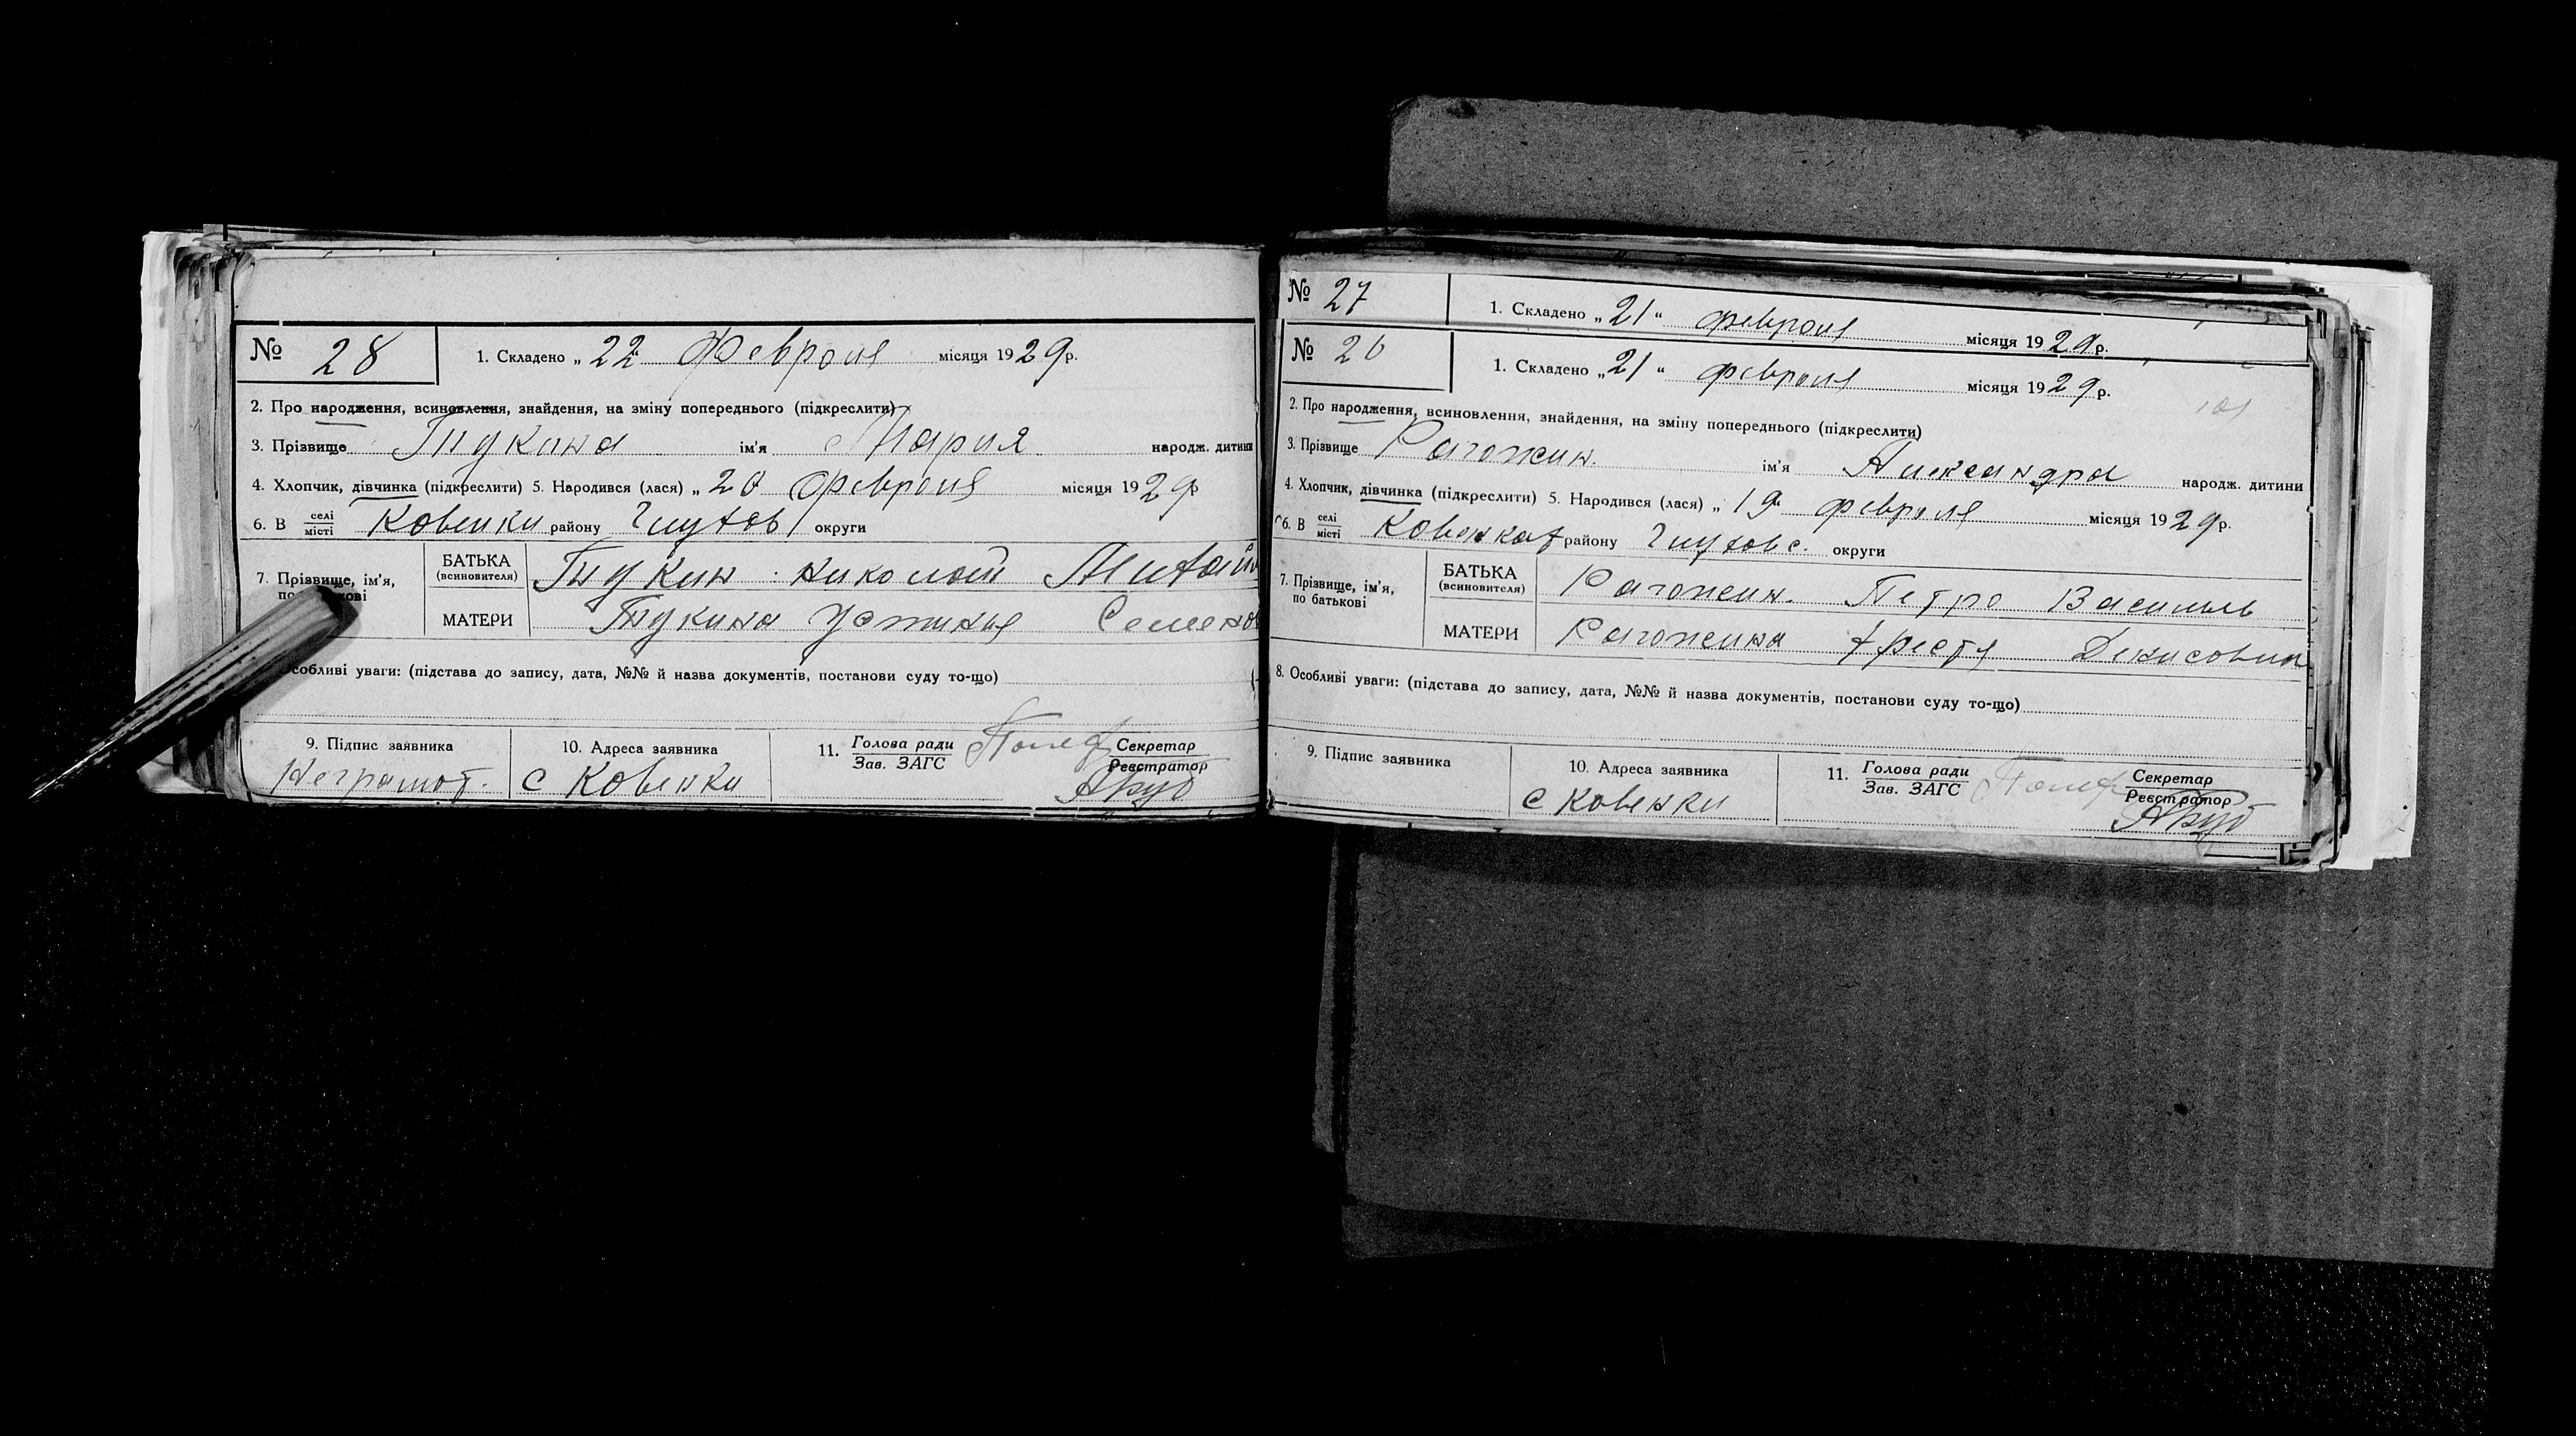 № 28
1. Складено „ 22 Февраля місяця 1929 р.
2. Про народження, всиновлення, знайдення, на зміну попереднього (підкреслити)
3. Прізвище ім'я Мария народж. дитини
4. Хлопчик, дівчинка (підкреслити) 5. Народився (лася) „ 20 Февраля місяця 1929 р
6. В селі місті Ковенки району Глухов округи
7. Прізвище, ім'я,
БАТЬКА
(всиновителя)
Николай
МАТЕРИ Устинья Семенов
Особливі уваги: (підстава до запису, дата, №№ й назва документів, постанови суду то-що)
9. Підпис заявника
Неграмот.
10. Адреса заявника
с Ковенки
11. Голова ради
Зав. ЗАГС
Секретар
Реєстратор
№ 27
1. Складено „ 21 “ февраля місяця 1929 р.
№ 26
1. Складено „ 21 “ февраля місяця 1929 р.
101
2. Про народження, всиновлення, знайдення, на зміну попереднього (підкреслити)
3. Прізвище Рагожин. ім'я Александра народж. дитини
4. Хлопчик, дівчинка (підкреслити) 5. Народився (лася) „ 19 февраля місяця 1929 р.
6. В селі місті Ковенках району Глуховс. округи
7. Прізвище, ім'я,
по батькові
БАТЬКА
(всиновителя)
Рагожин. Петро Василь
МАТЕРИ Рагожина Денисовна
8. Особливі уваги: (підстава до запису, дата, №№ й назва документів, постанови суду то-що)
9. Підпис заявника
10. Адреса заявника
с Ковенки
11. Голова ради
Зав. ЗАГС
Секретар
Реєстратор